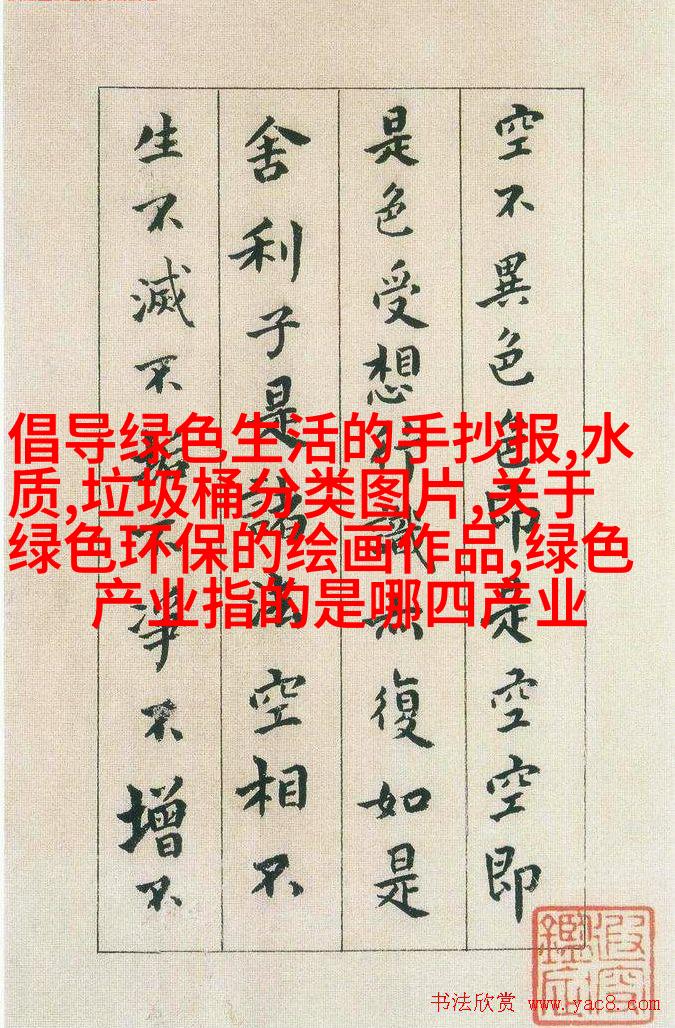 空不異色色即是空空即
是色受想行識復如是
舍利子是諸法空相不
生不滅不垢不淨不增不
倡导绿色生活的手抄报,水
质,垃圾桶分类图片,关于
绿色环保的绘画作品,绿色
产业指的是哪四产业
书法欣赏 www.yac8.com